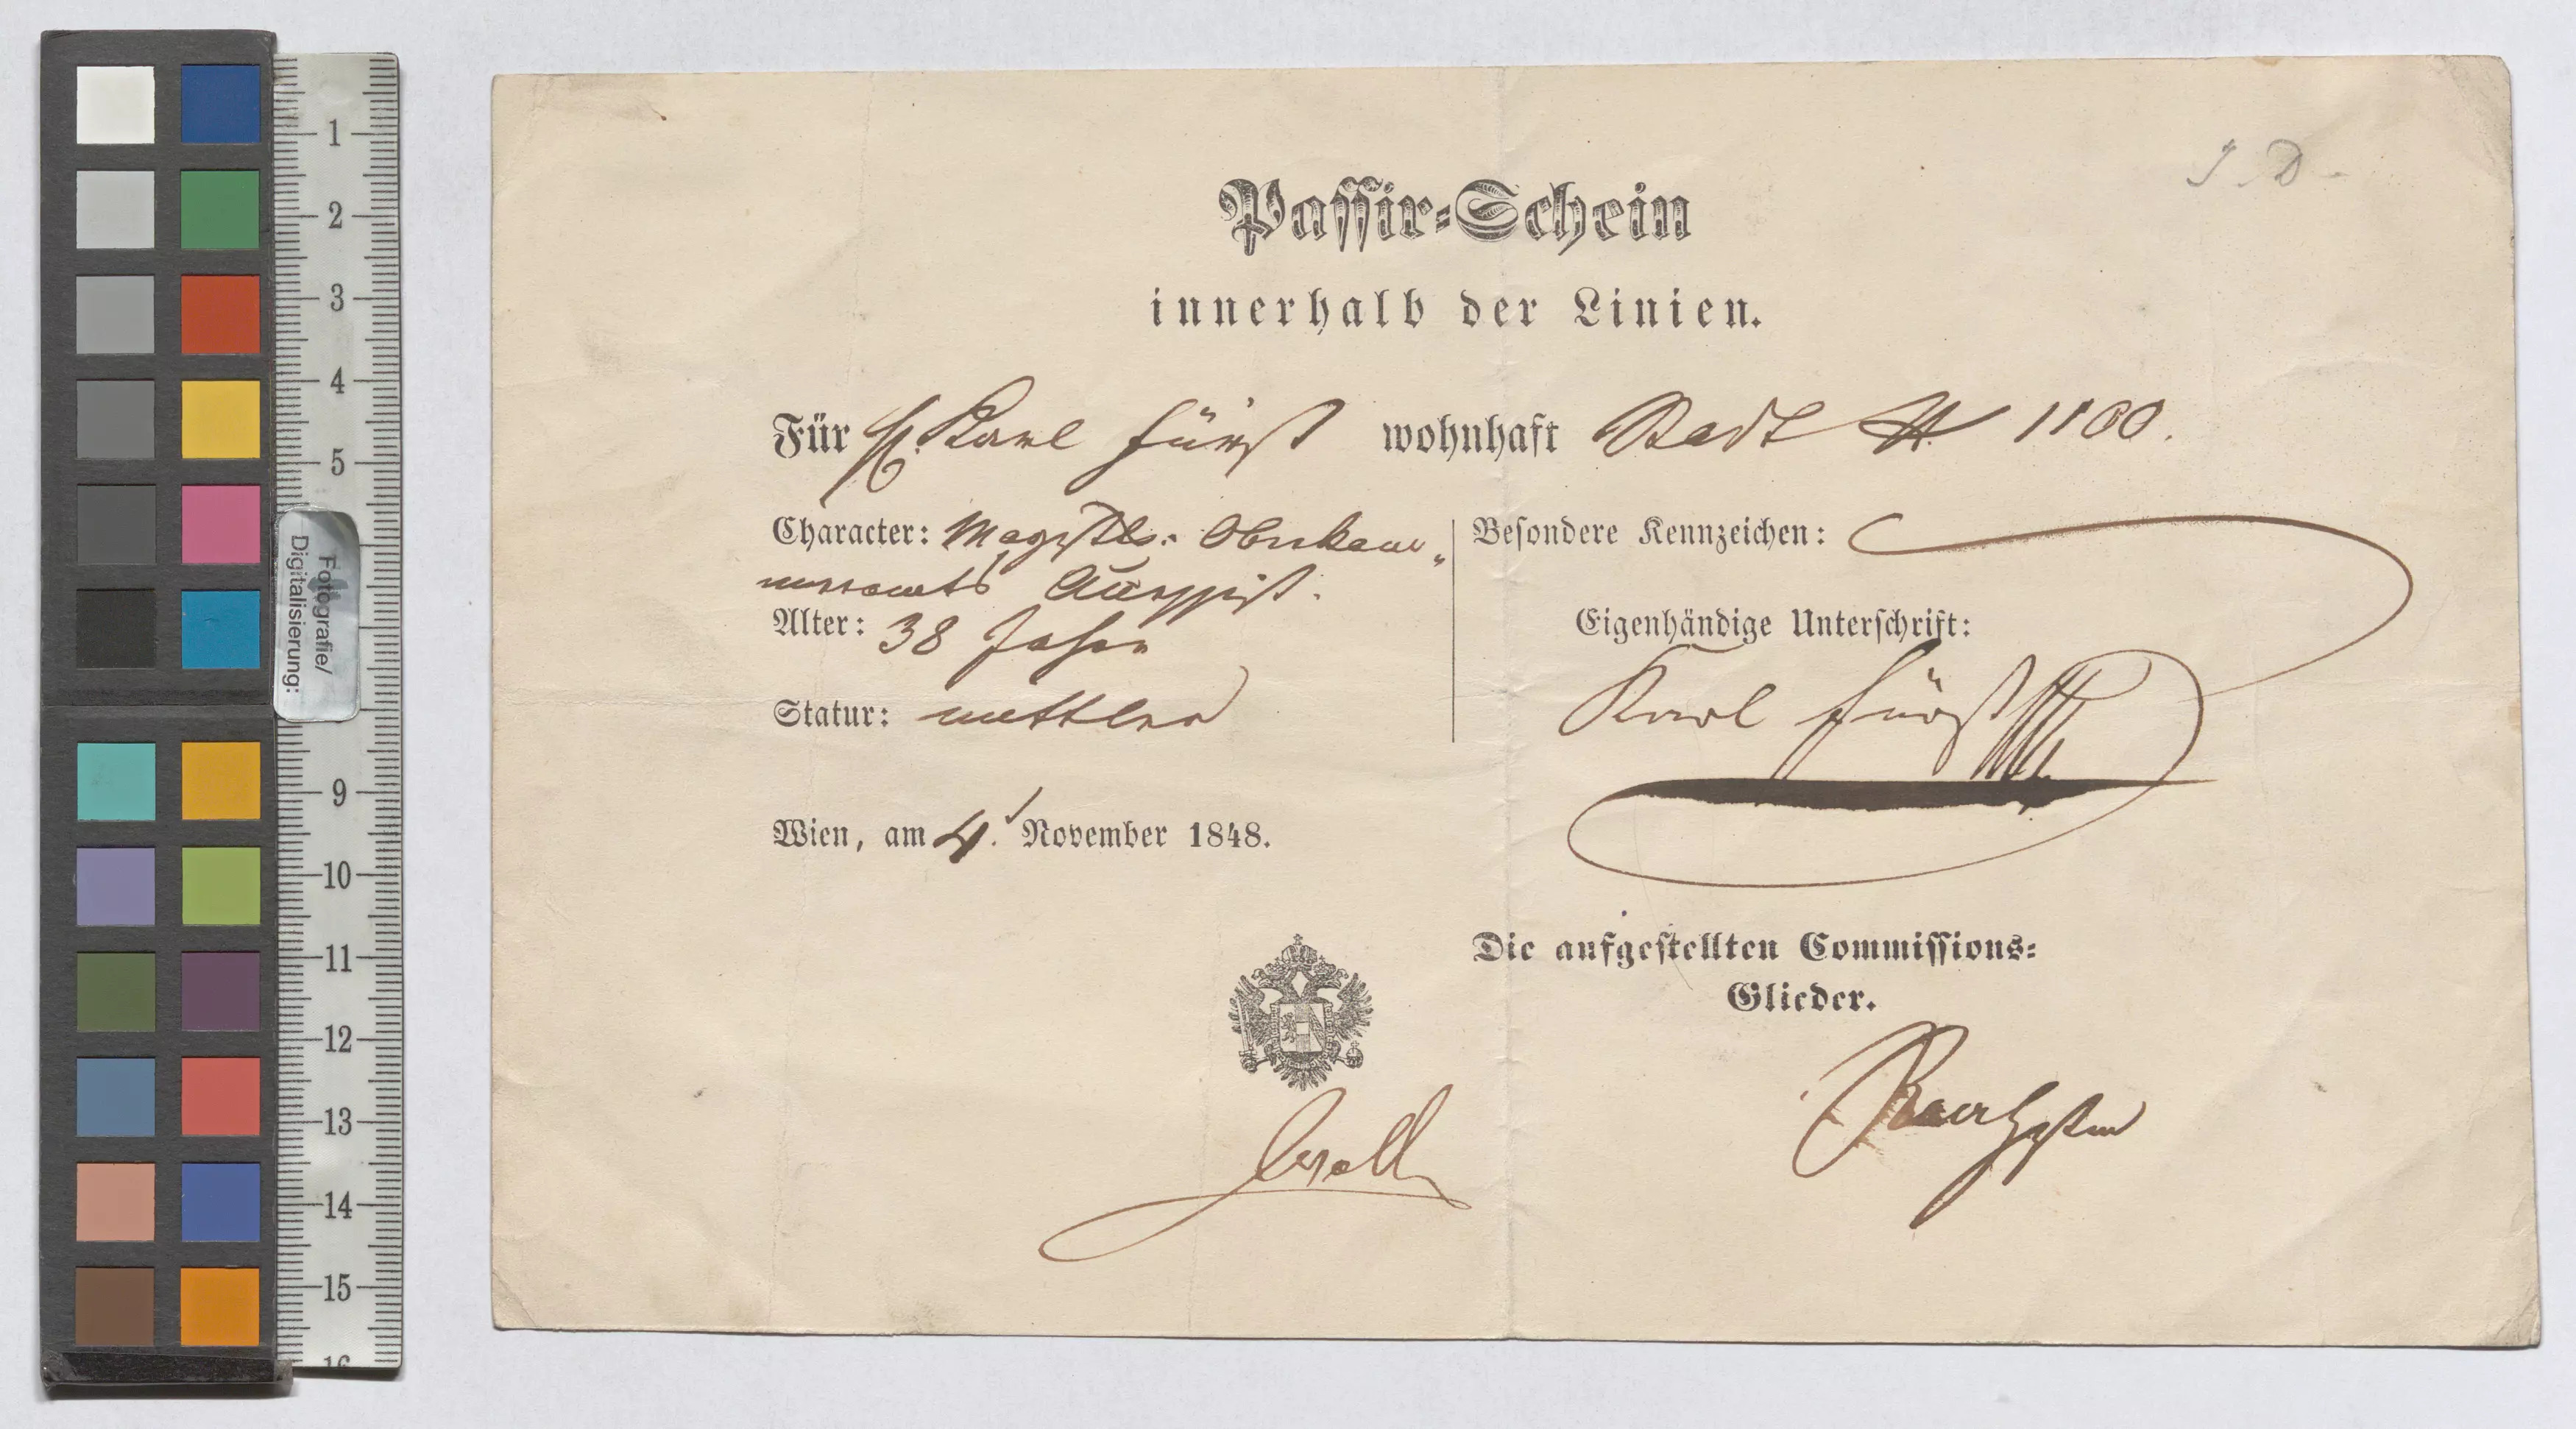 J. D.
Passir-Schein
innerhalb der Linien.
Für H. Karl Fürst wohnhaft Stadt N 1100.
Character: Magistls. Oberkam„
meramts Accessist.
Alter: 38 Jahre
Statur: mittler
Besondere Kennzeichen:
Eigenhändige Unterschrift:
Karl Fürst
Wien, am 4. November 1848.
Die aufgestellten Commissions-
Glieder.
1
2
3
4
5
Fotografie/
Digitalisierung:
9
10
11
12
13
14
15
16